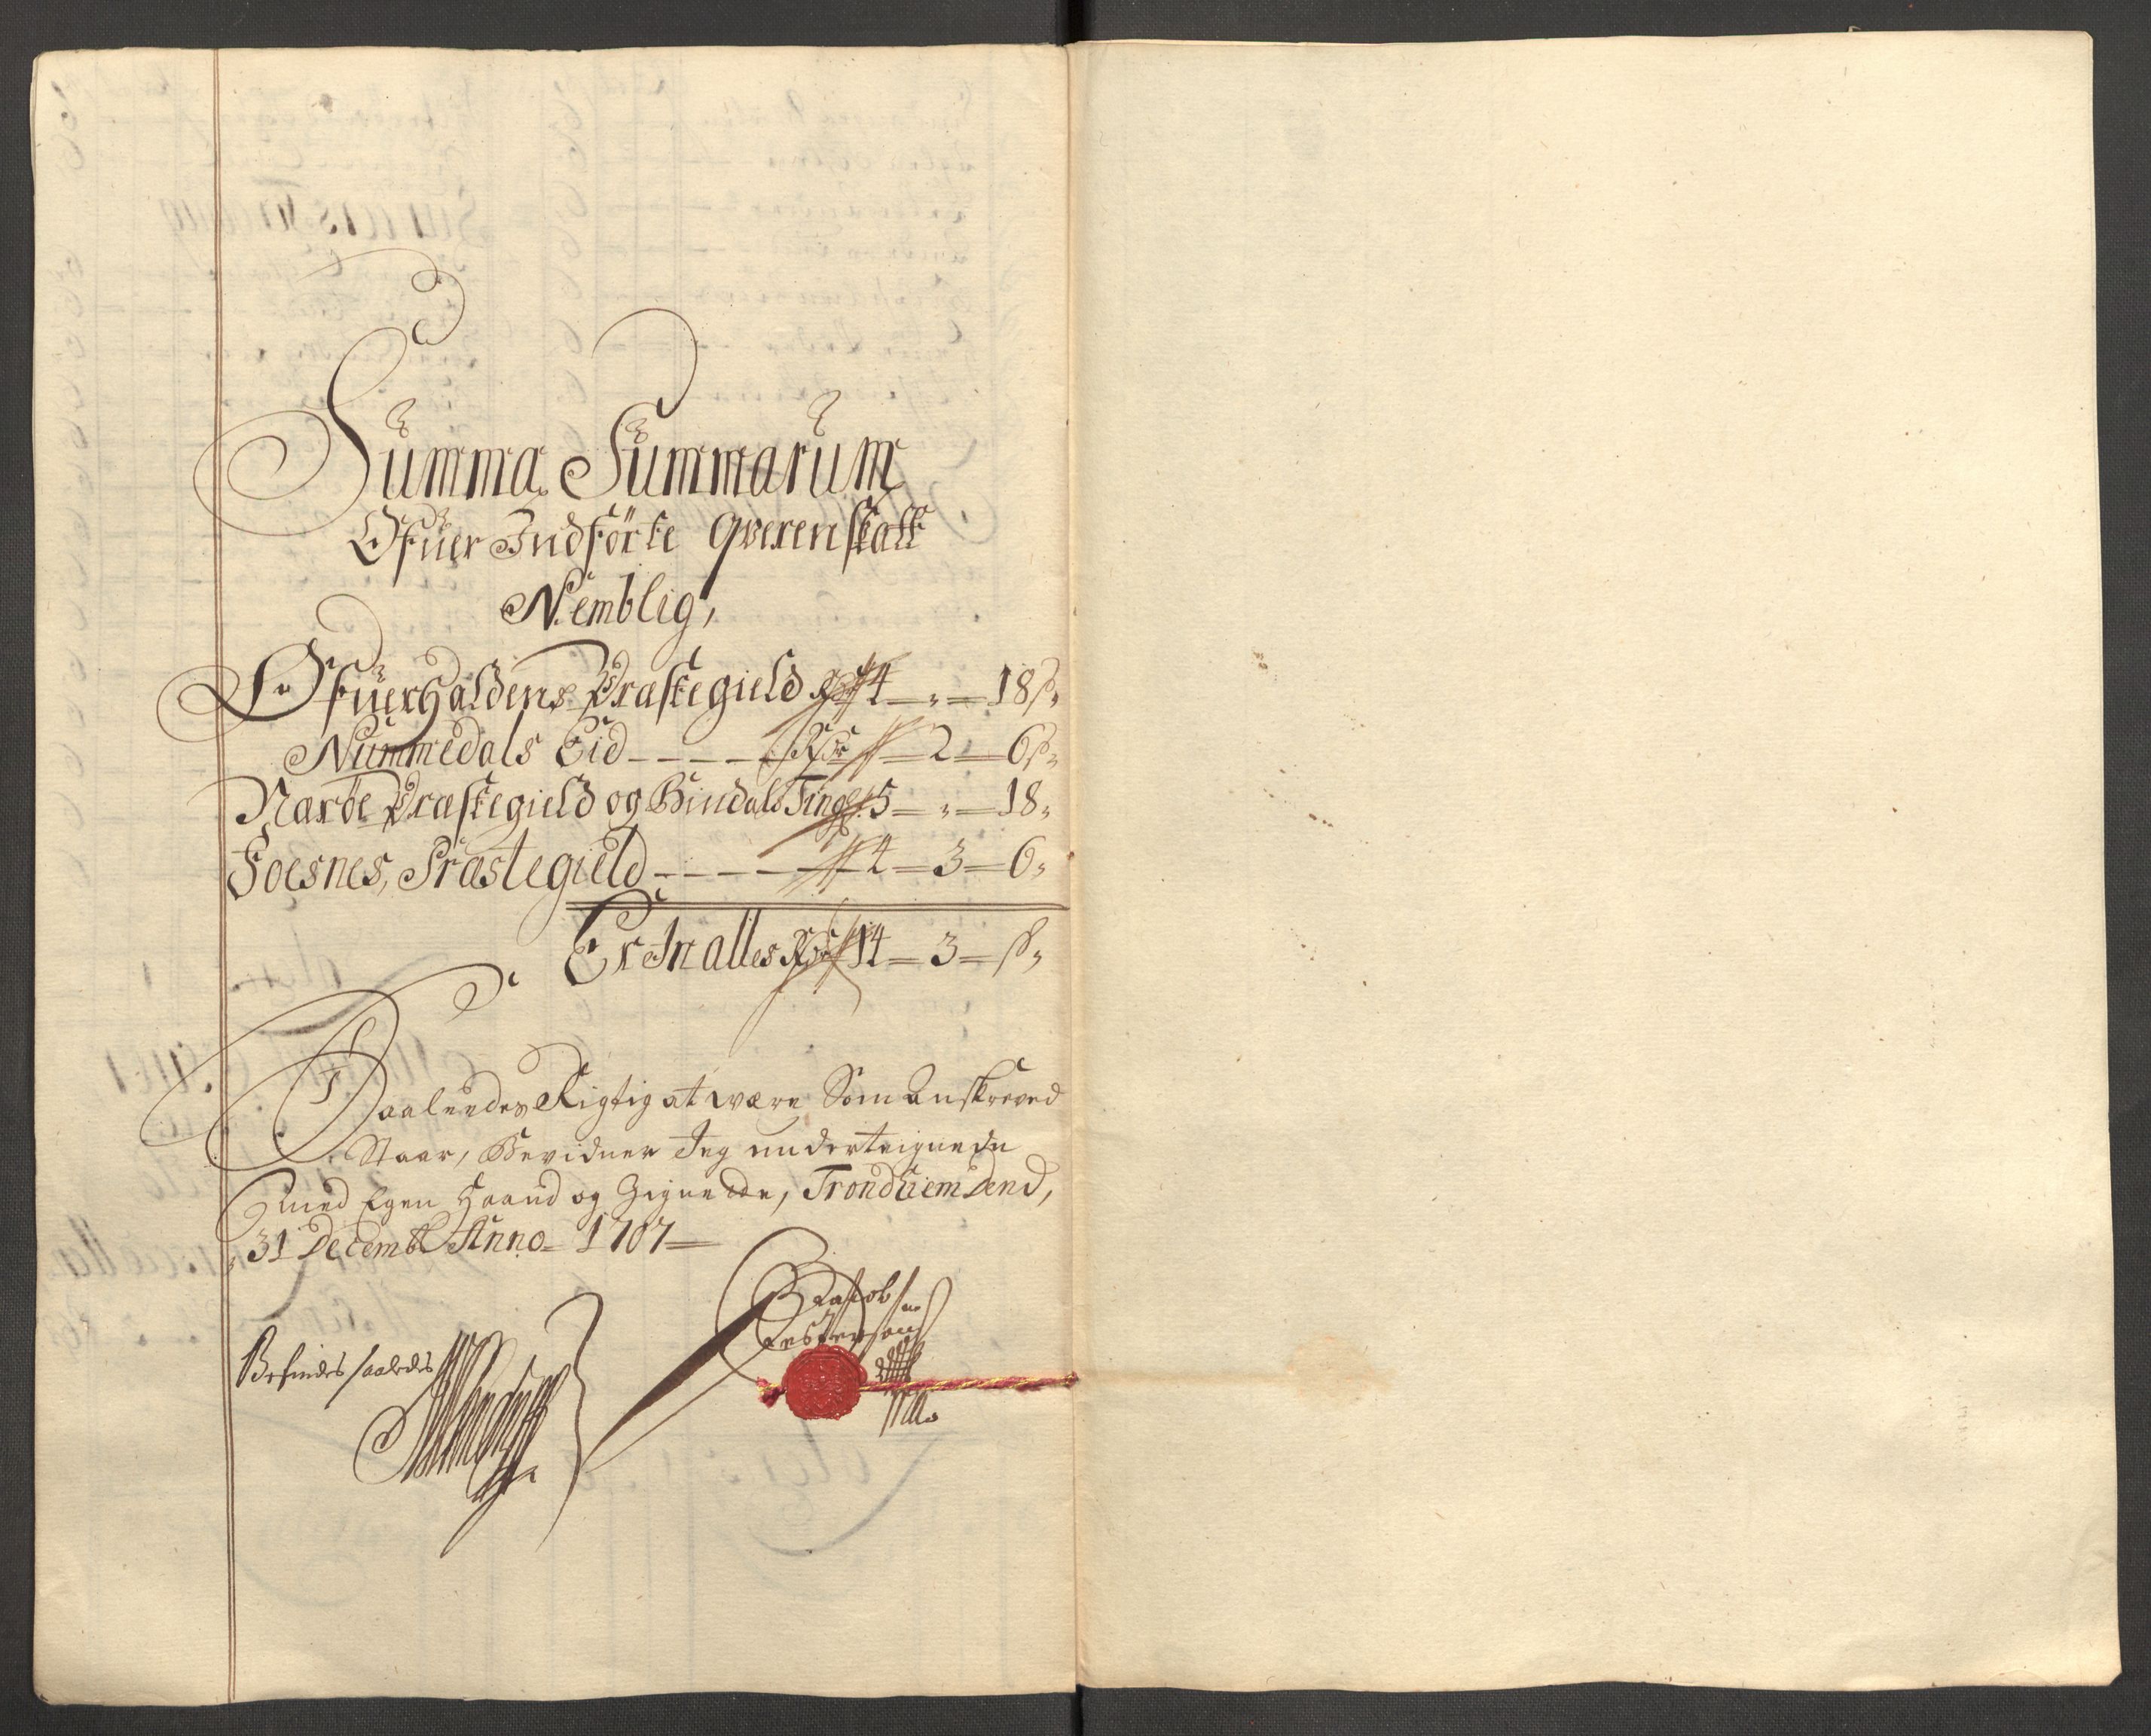 Summa Summarum
Ofuer Indförte Qverenskatt
Nemblig,
Ofuerhaldens Præstegield 4 — „ — 18 s,
Nummedals Eid - - - - - Rdr — 2 — 6 s,
Nærøe Præstegield og Bindals Tingl: 5 — „ — 18,
Foesnes, Præstegield - - - - - 4 — 3 — 6,
Er In alles Rdr 14 — 3 — s,
Saaledes Rigtig at være Som Anskreved
Staar, Bevidner Jeg underteignede
med Egen Haand og Zignedte, Trondhiem Dend,
31 Decembr Anno 1707
Befindes saaledes